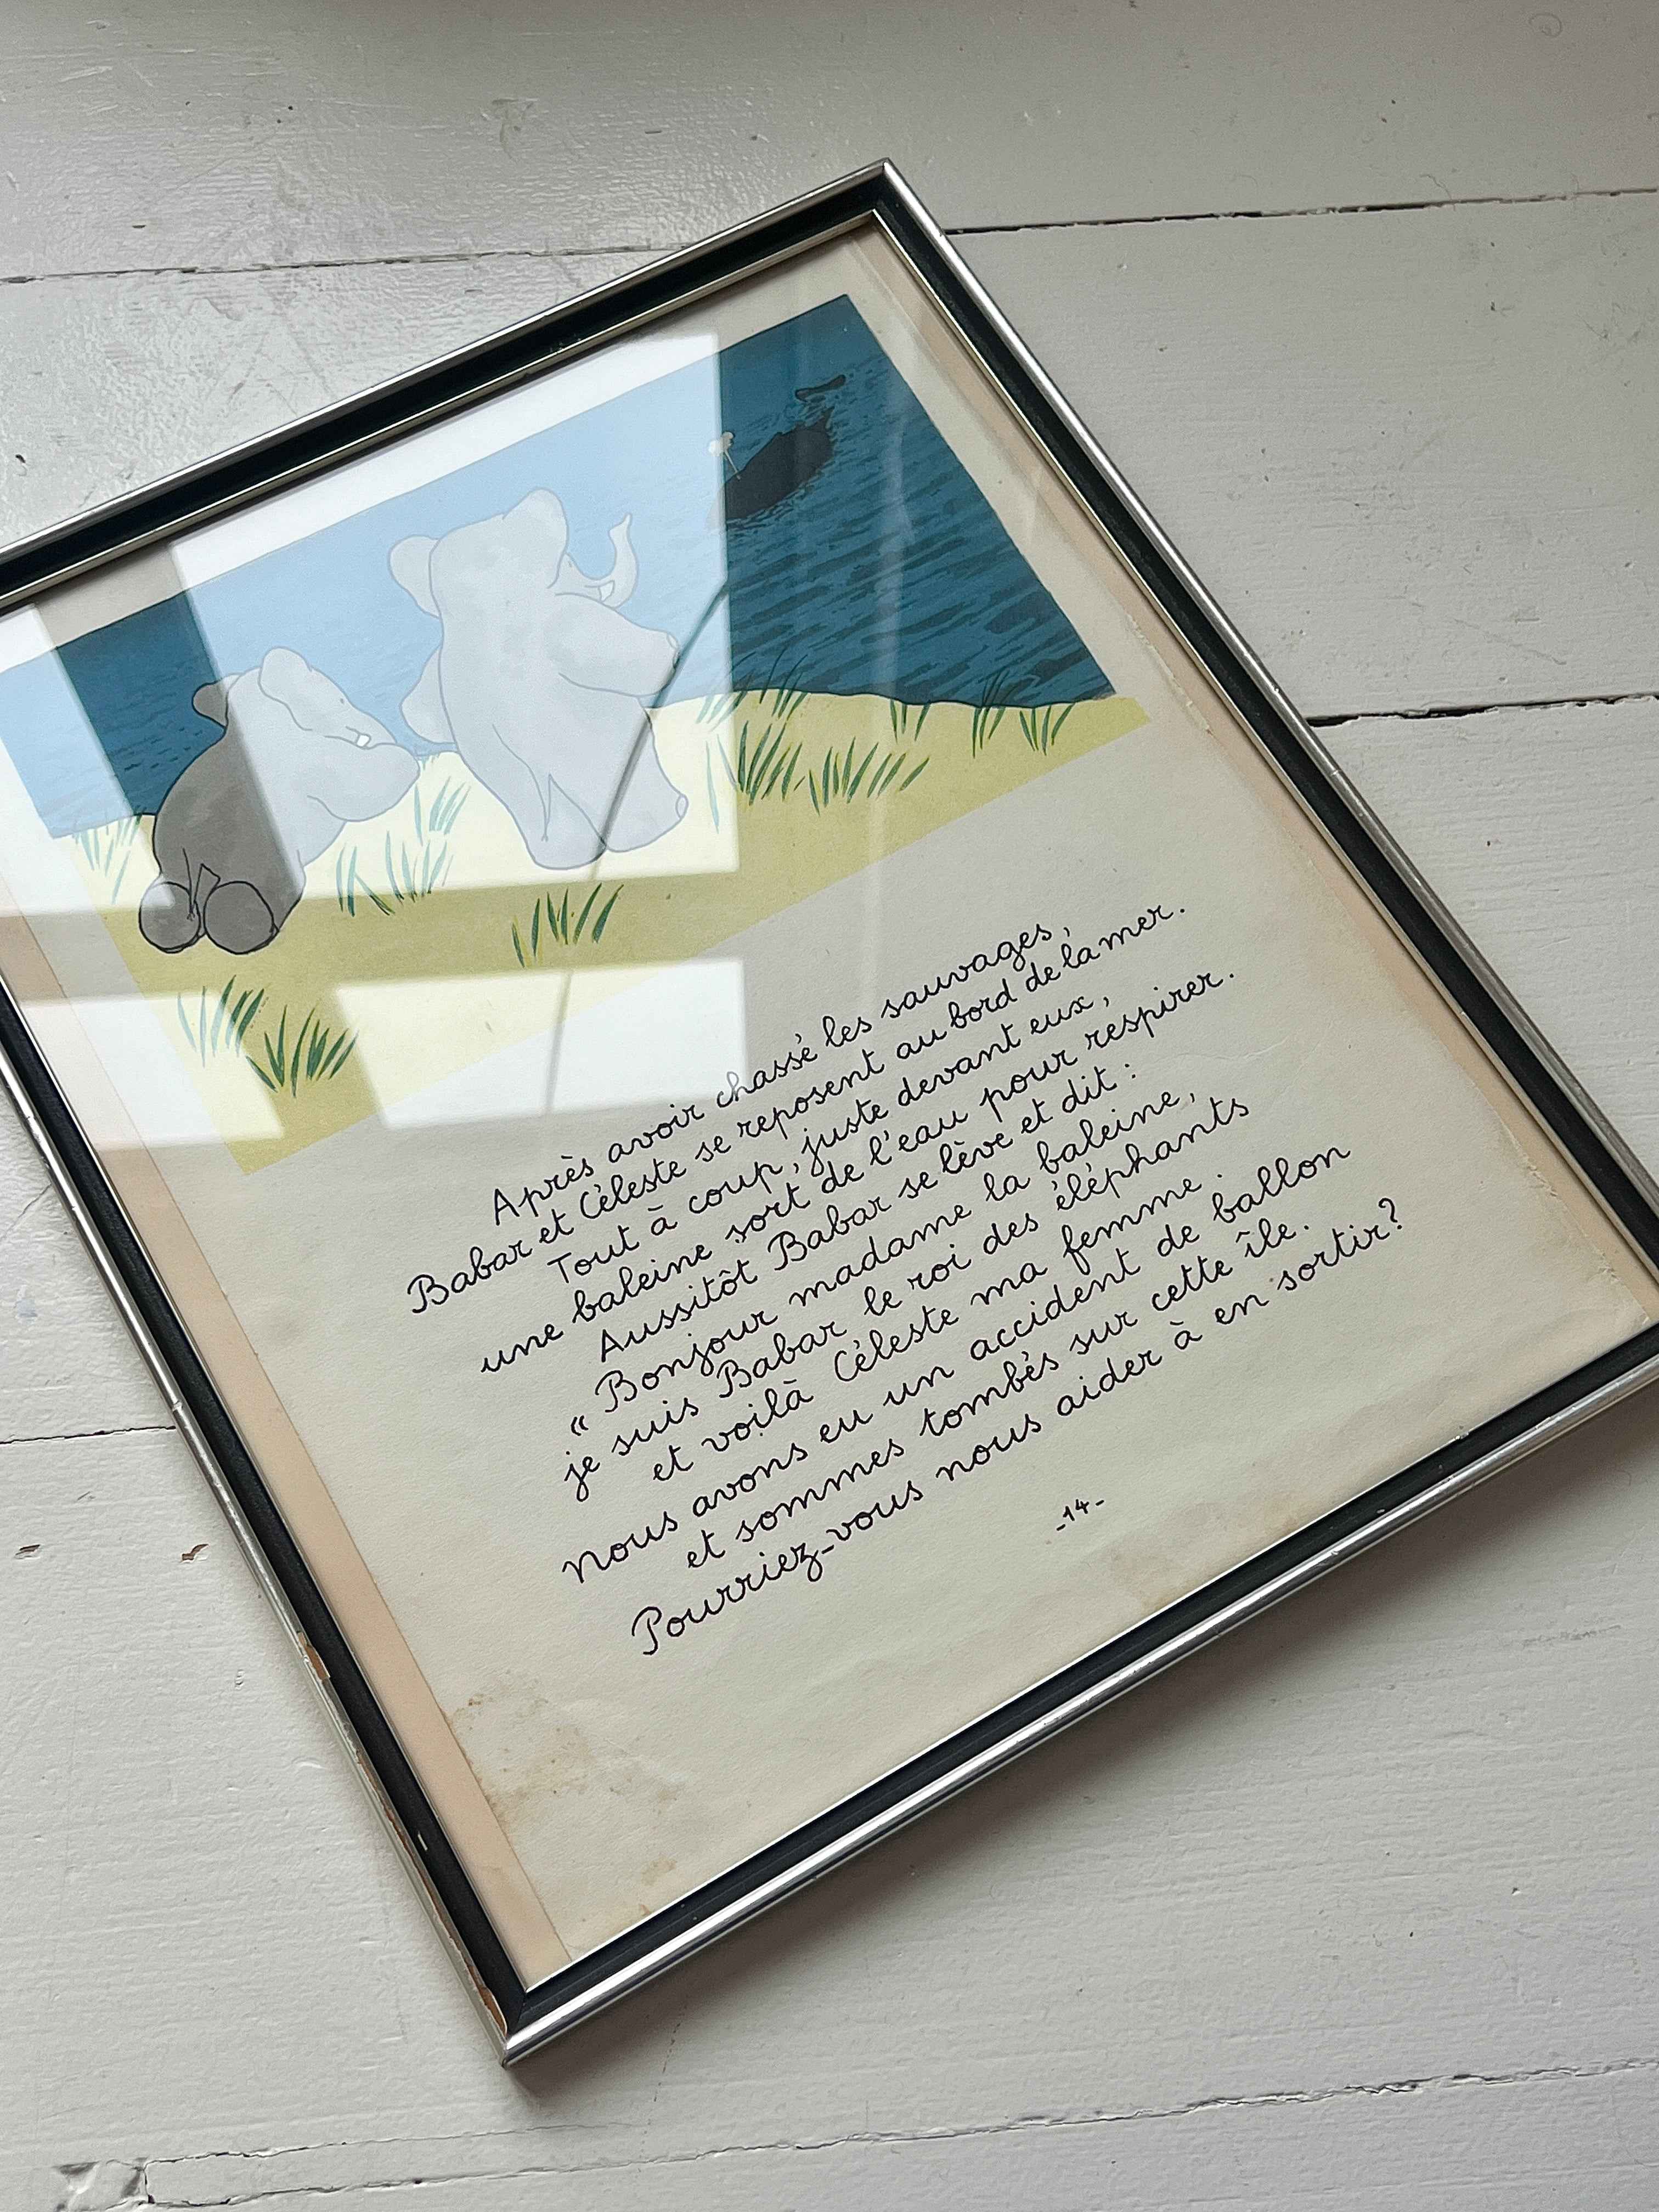 Après avoir chassé les sauvages,
Babar et Céleste se reposent au bord de la mer.
Tout à coup, juste devant eux,
une baleine sort de l'eau pour respirer.
Aussitôt Babar se lève et dit :
« Bonjour madame la baleine,
je suis Babar le roi des éléphants
et voilà Céleste ma femme.
Nous avons eu un accident de ballon
et sommes tombés sur cette île.
Pourriez-vous nous aider à en sortir?
-14-